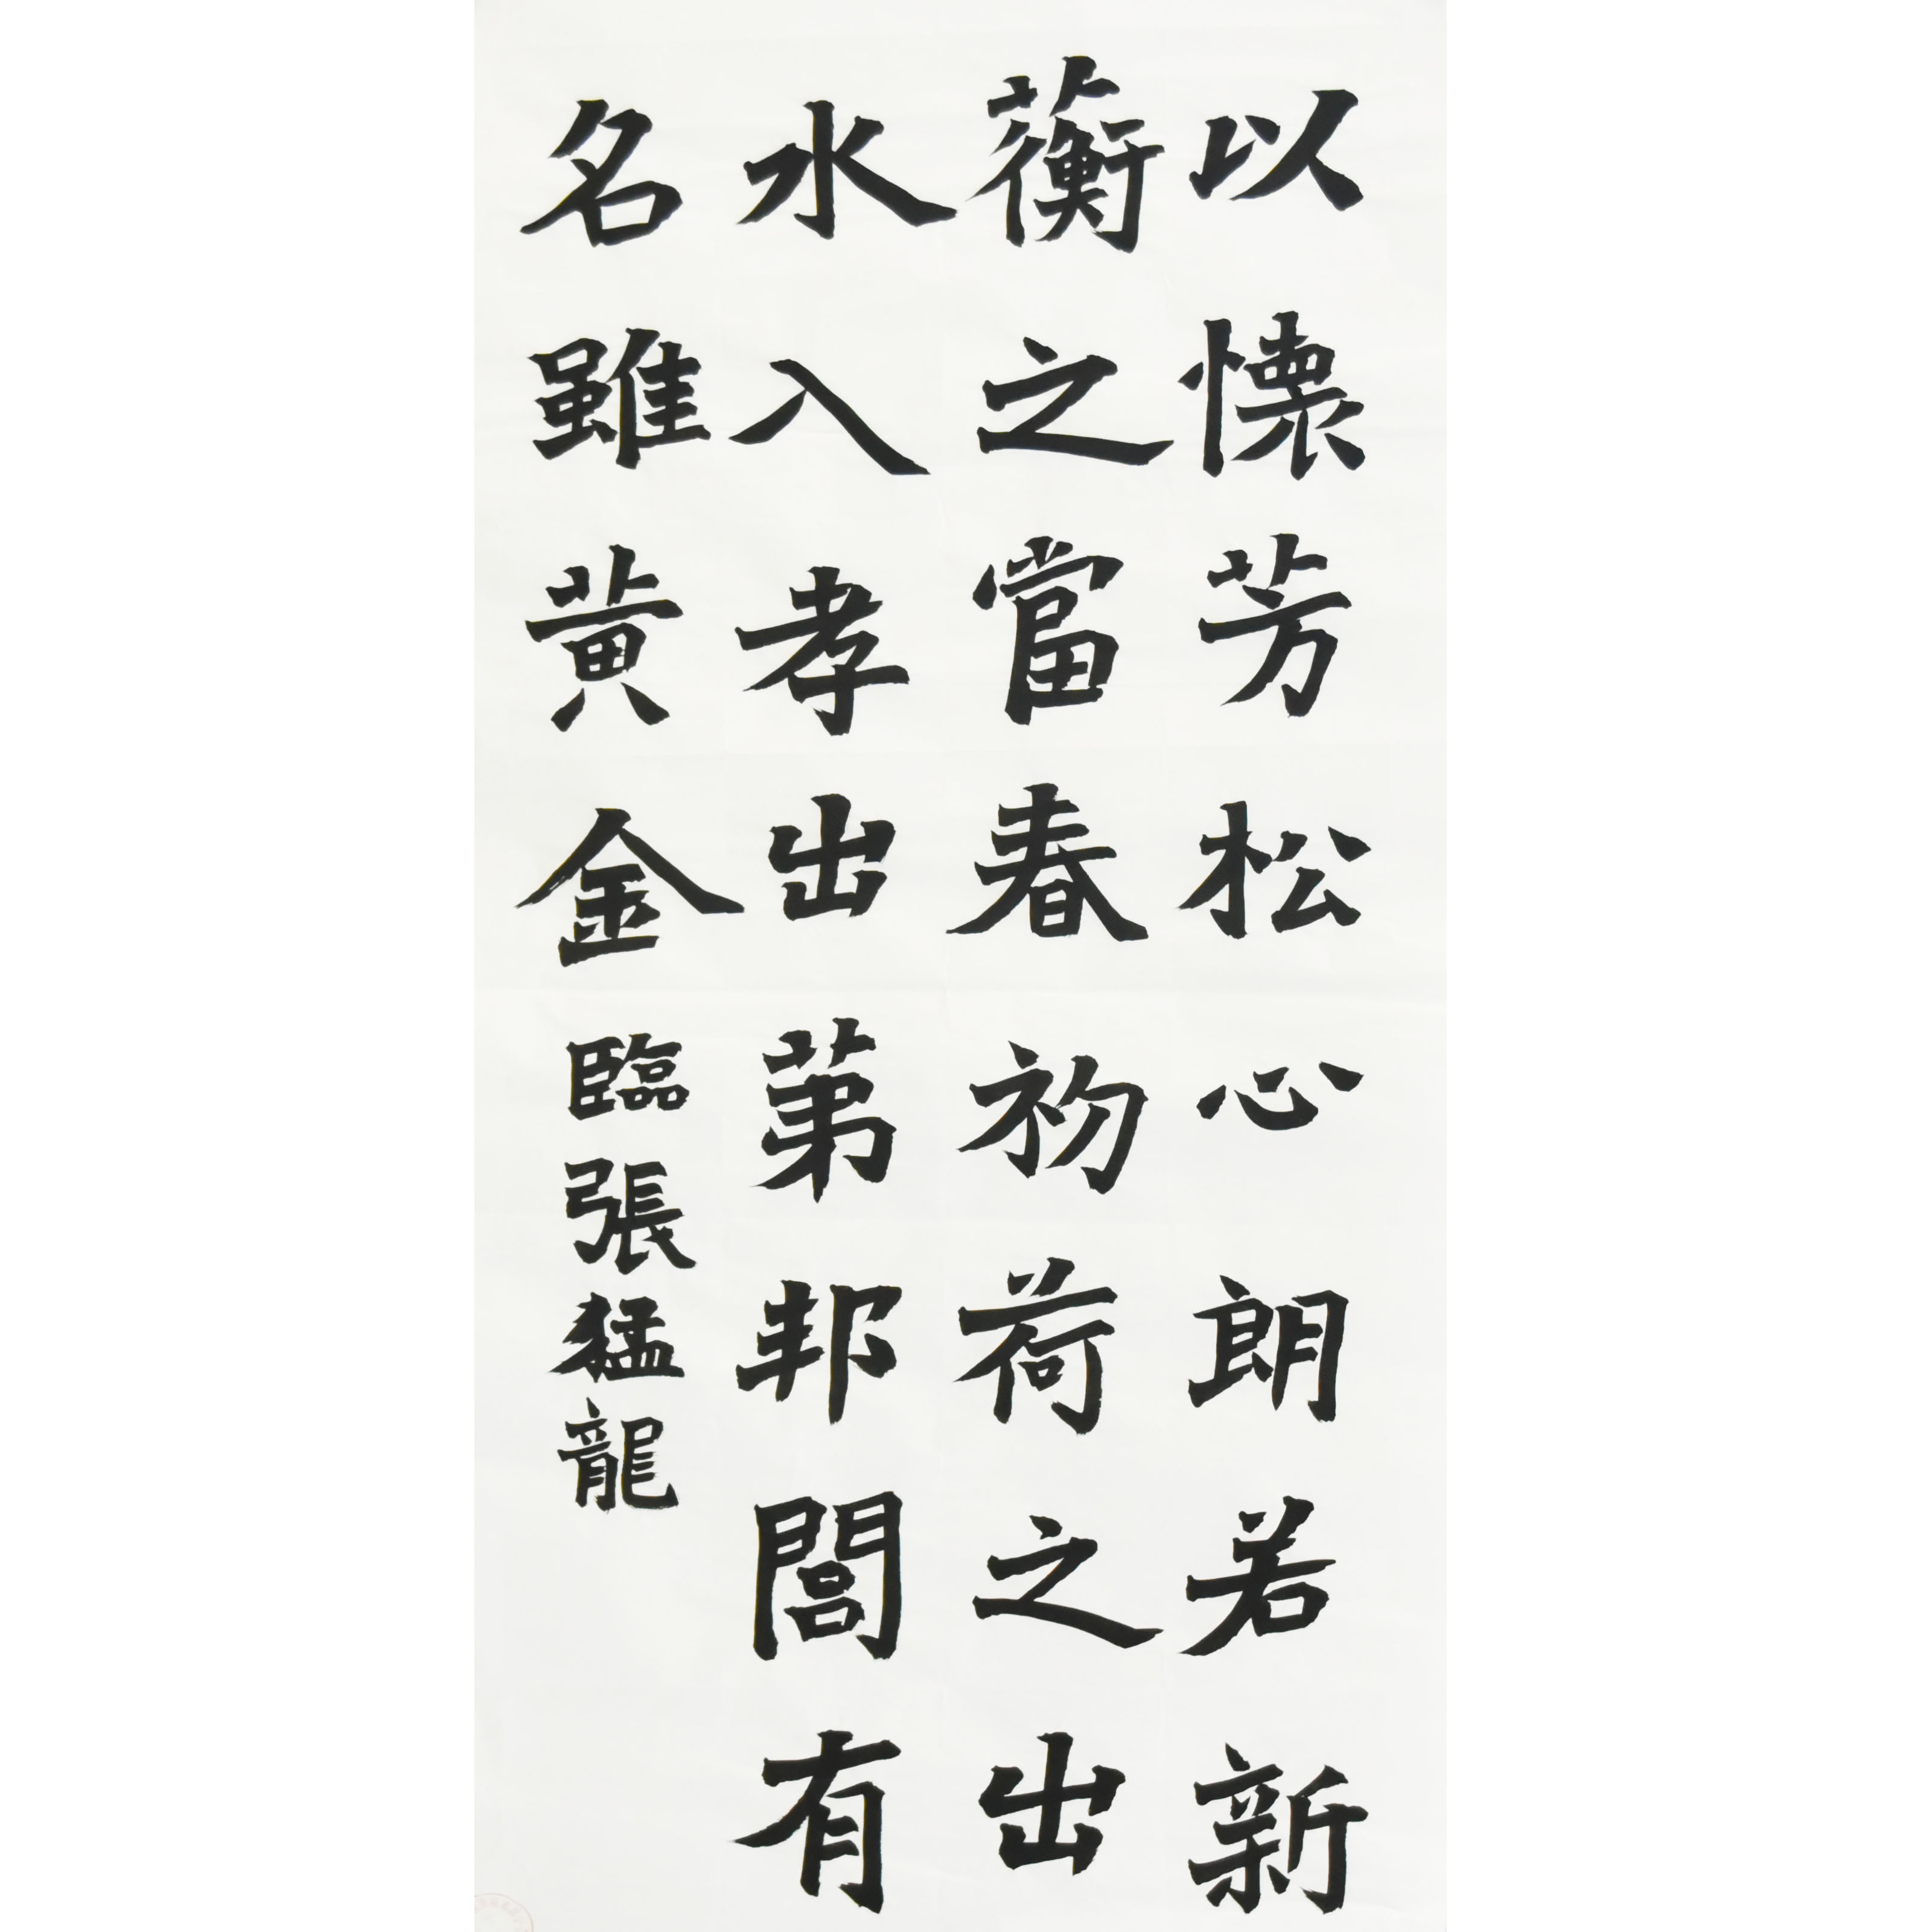 以懷芳松心朗若新
蘅之當春初荷之出
水入孝出第邦閭有
名雖黃金臨張猛龍